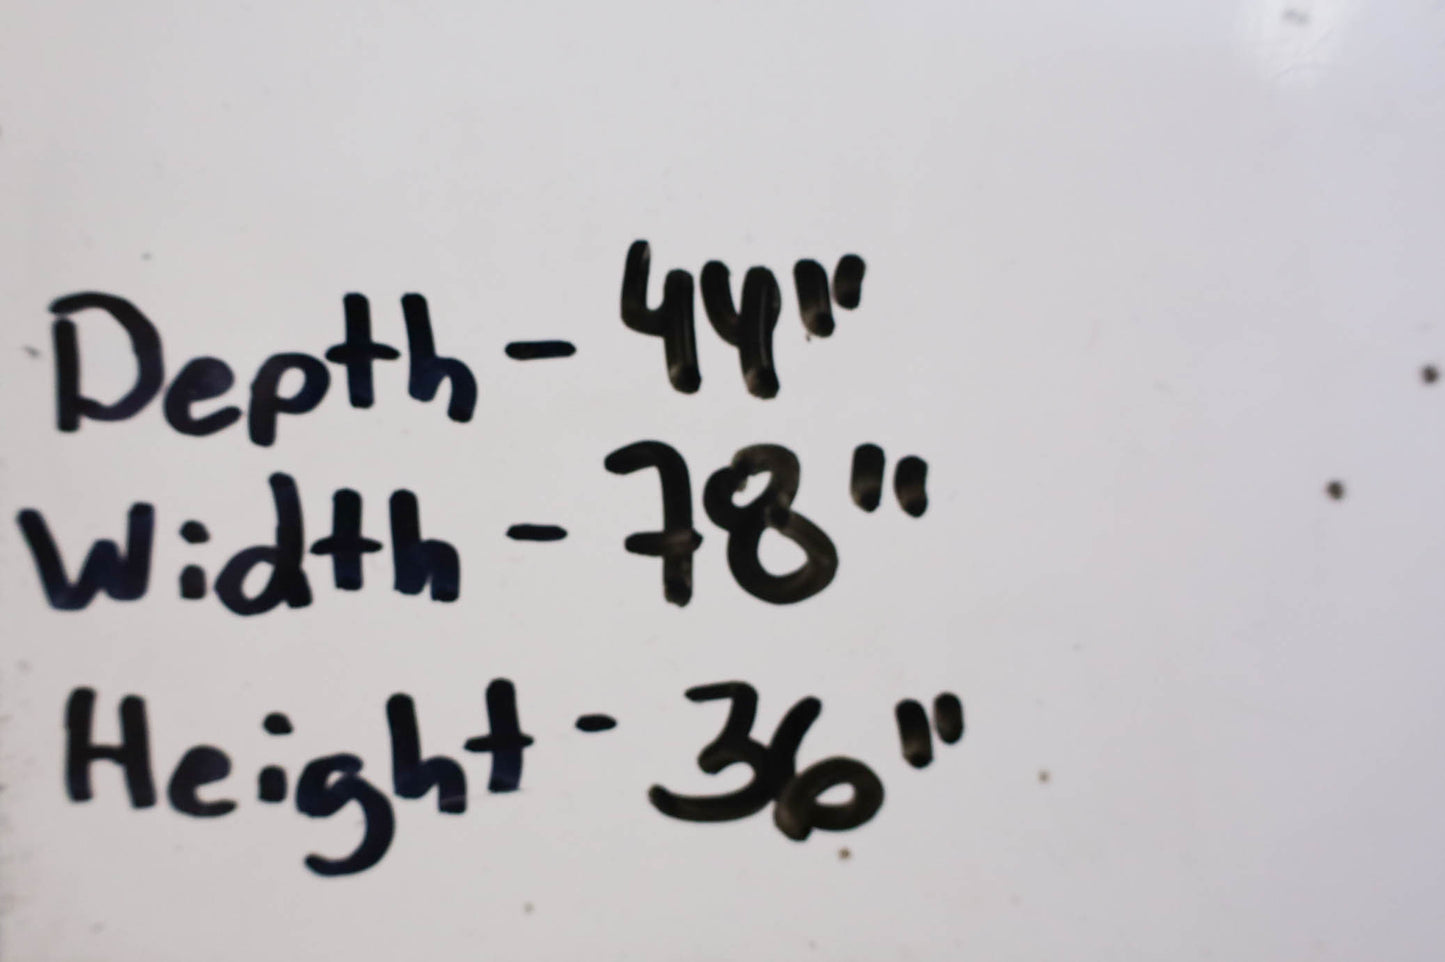 Depth - 44"
Width - 78"
Height - 36"